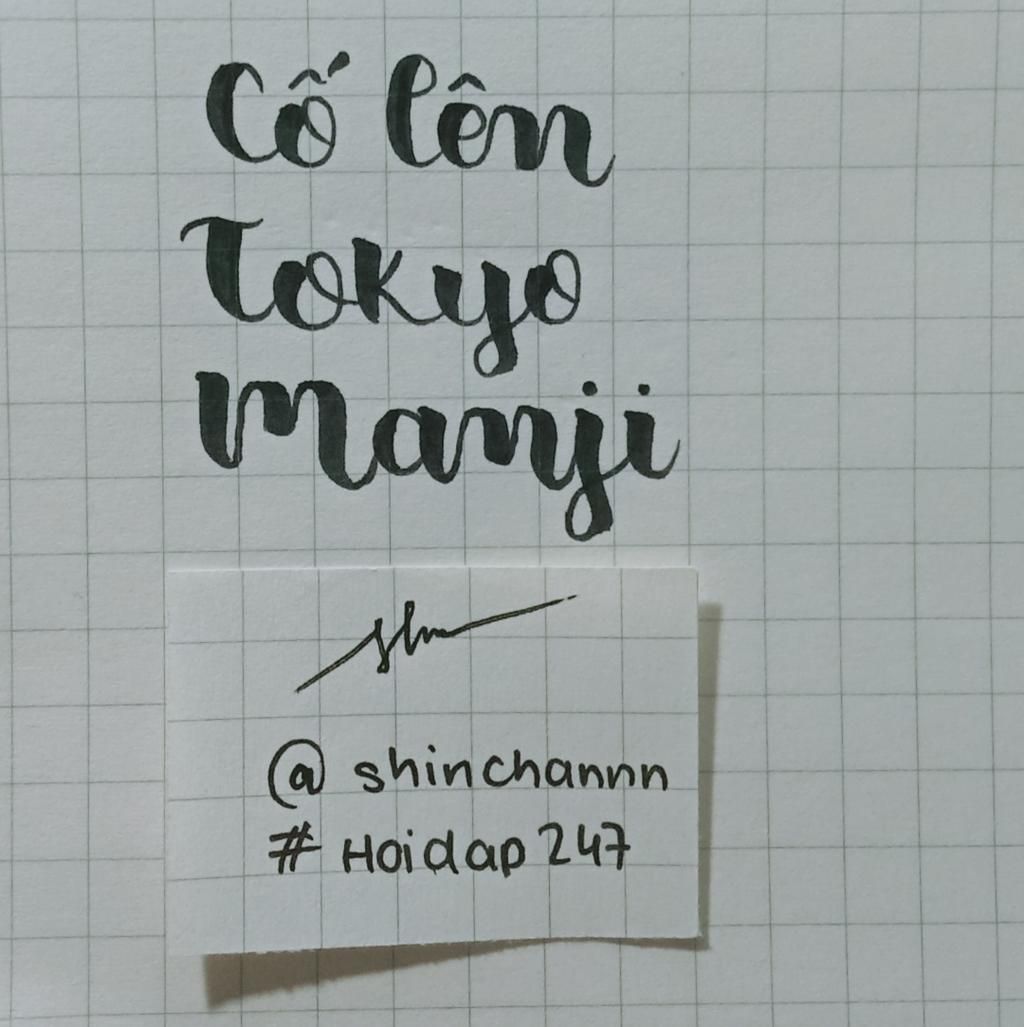 Cố lên
Tokyo
Manji
@ shinchannn
# Hoidap 247